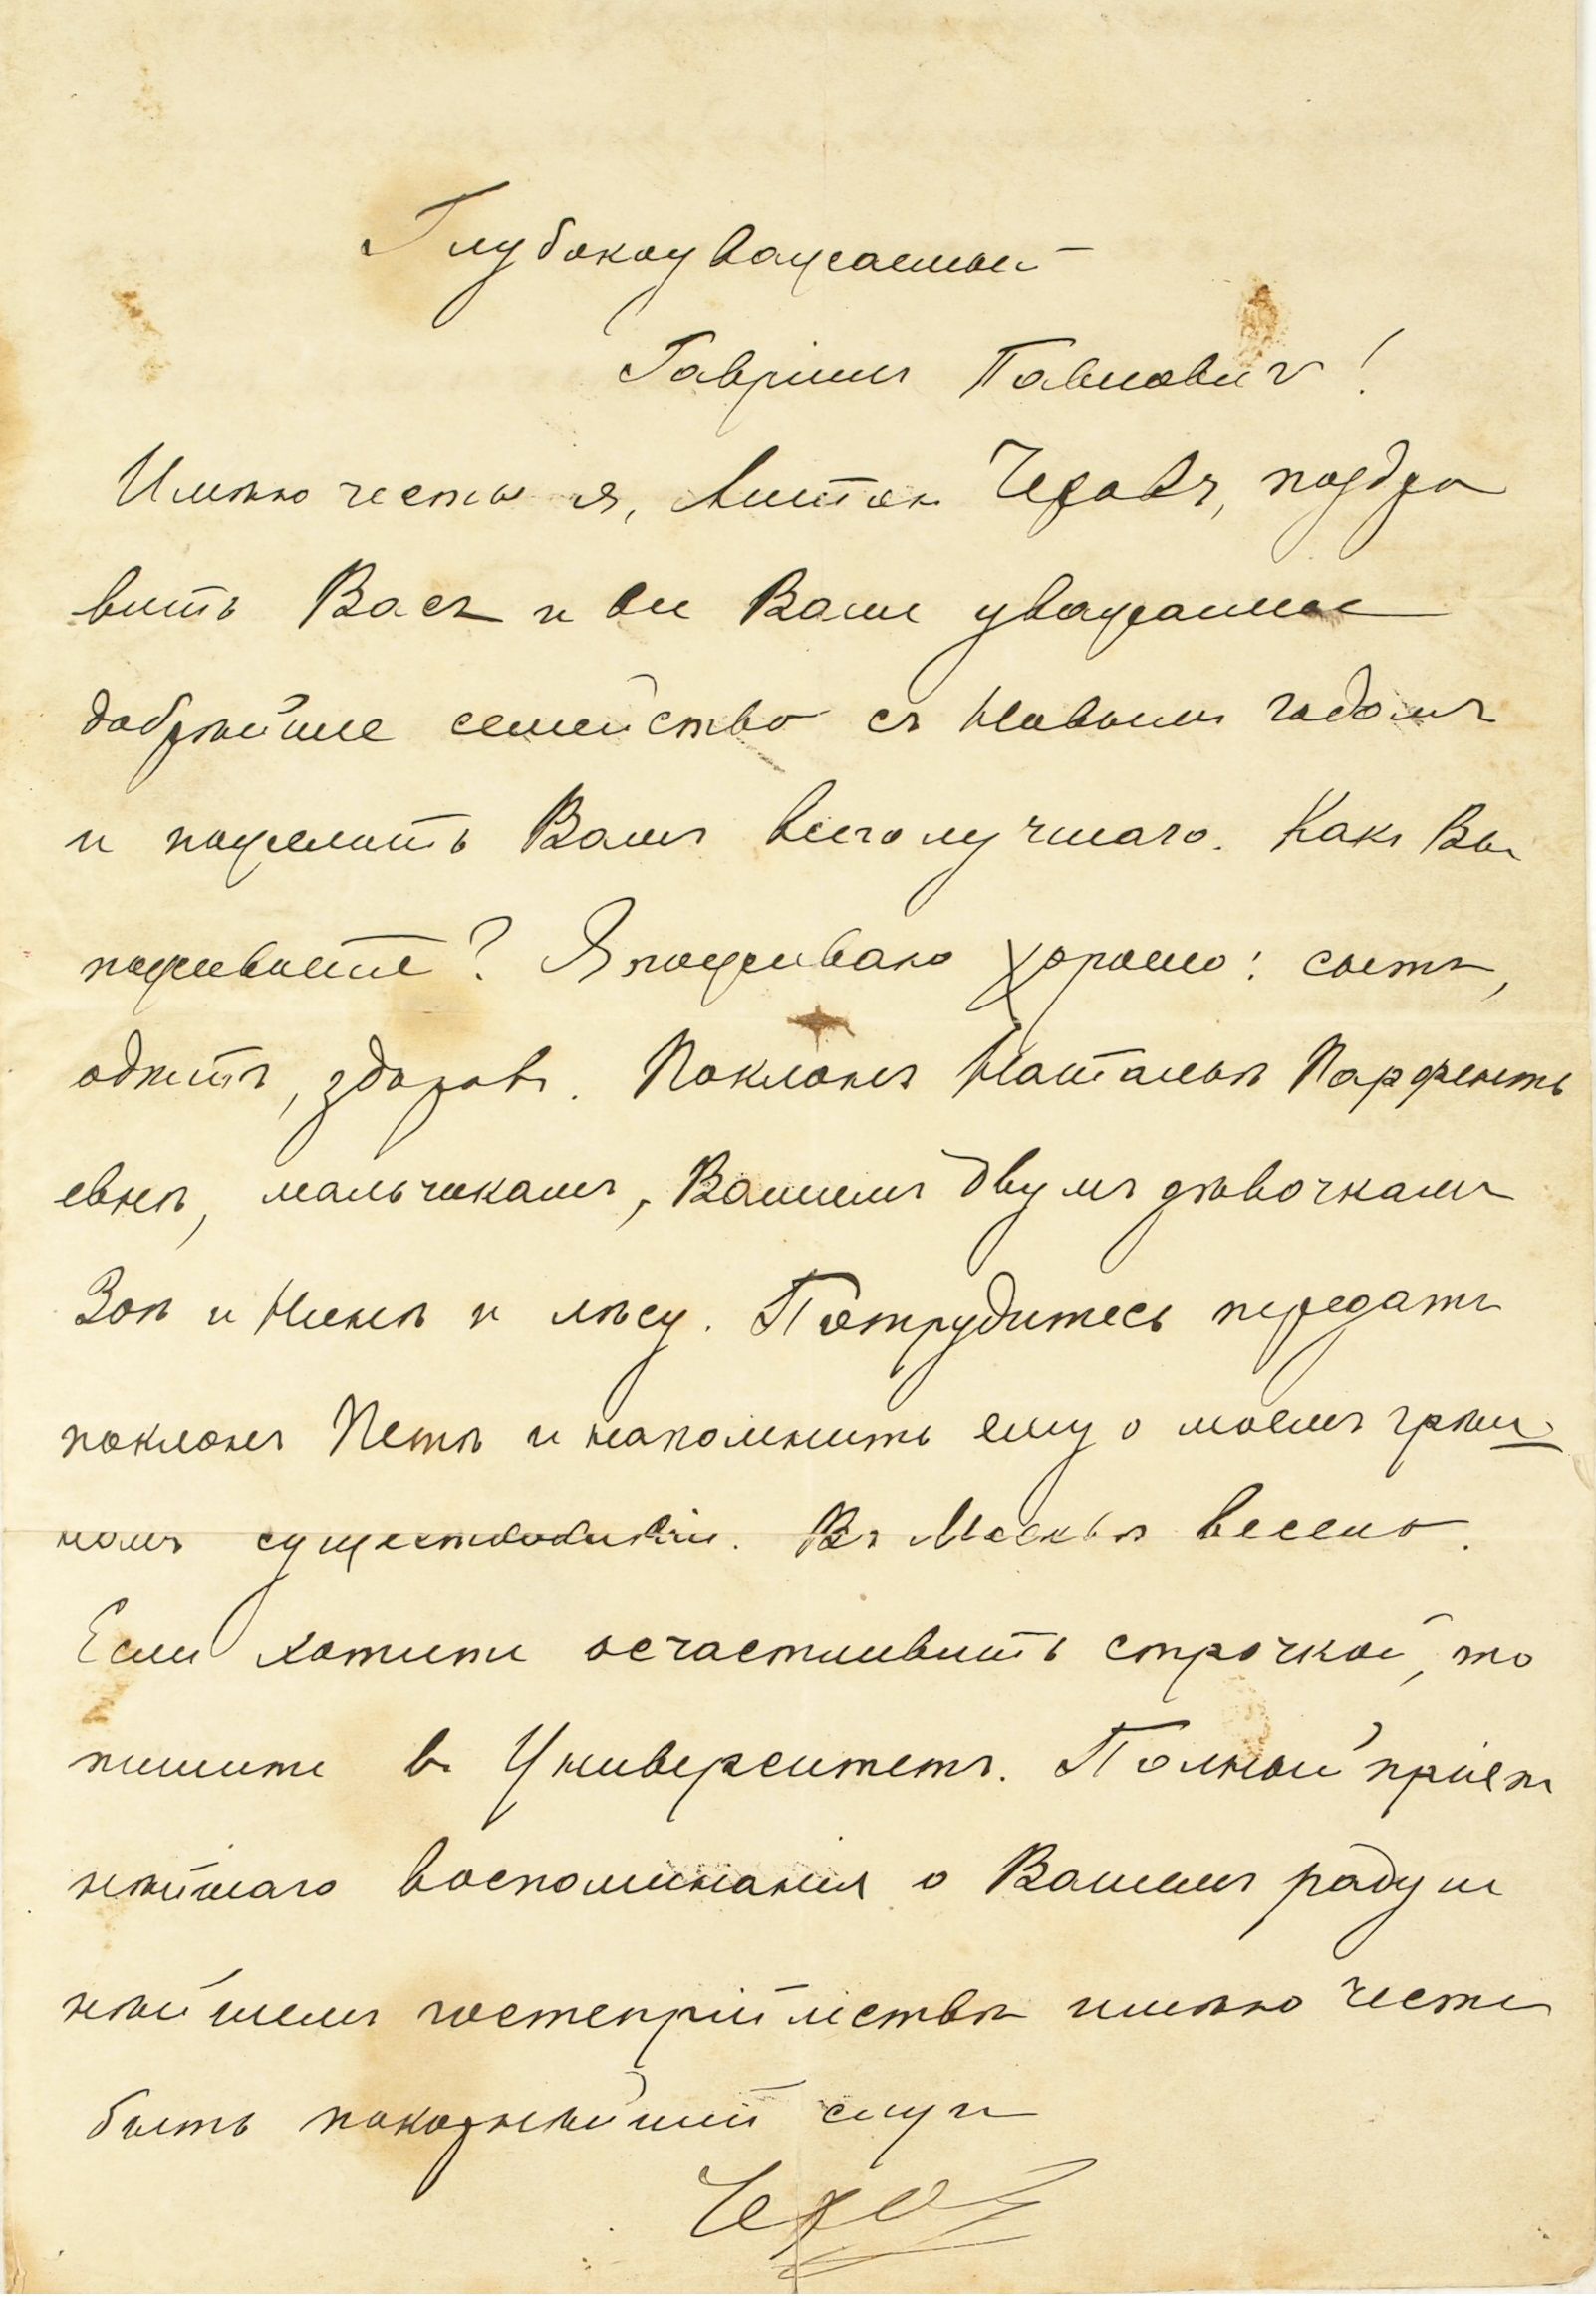 Глубокоуважаемый
Гавріилъ Павловичъ!
Имѣю честь я, Антонъ Чеховъ, поздра
вить Васъ и все Ваше уважаемое
добрѣйшее семейство съ Новымъ годомъ
и пожелать Вамъ всего лучшаго. Какъ Вы
поживаете? Я поживаю хорошо: сытъ,
одѣтъ, здоровъ. Поклонъ Натальѣ Парфенть
евнѣ, мальчикамъ, Вашимъ двумъ дѣвочкамъ
Зоѣ и Нинѣ и лѣсу. Потрудитесь передать
поклонъ Петѣ и напомнить ему о моемъ грѣш
номъ существованіи. Въ Москвѣ весело.
Если хотите осчастливить строчкой, то
пишите въ Университетъ. Полный пріят
нѣйшаго воспоминанія о Вашемъ радуш
нѣйшемъ гостепріимствѣ имѣю честь
быть покорнѣйшій слуга
Чехов